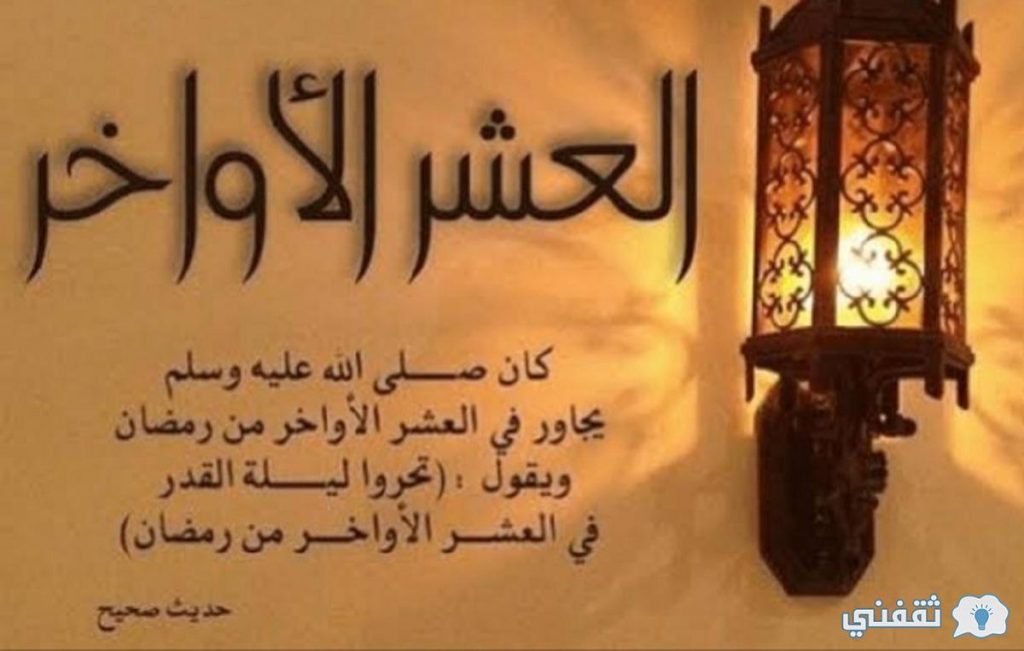 العشر الأواخر
كان صلى الله عليه وسلم
يجاور في العشر الأواخر من رمضان
ويقول : (تحروا ليلة القدر
في العشر الأواخر من رمضان)
حديث صحيح
ثقفني